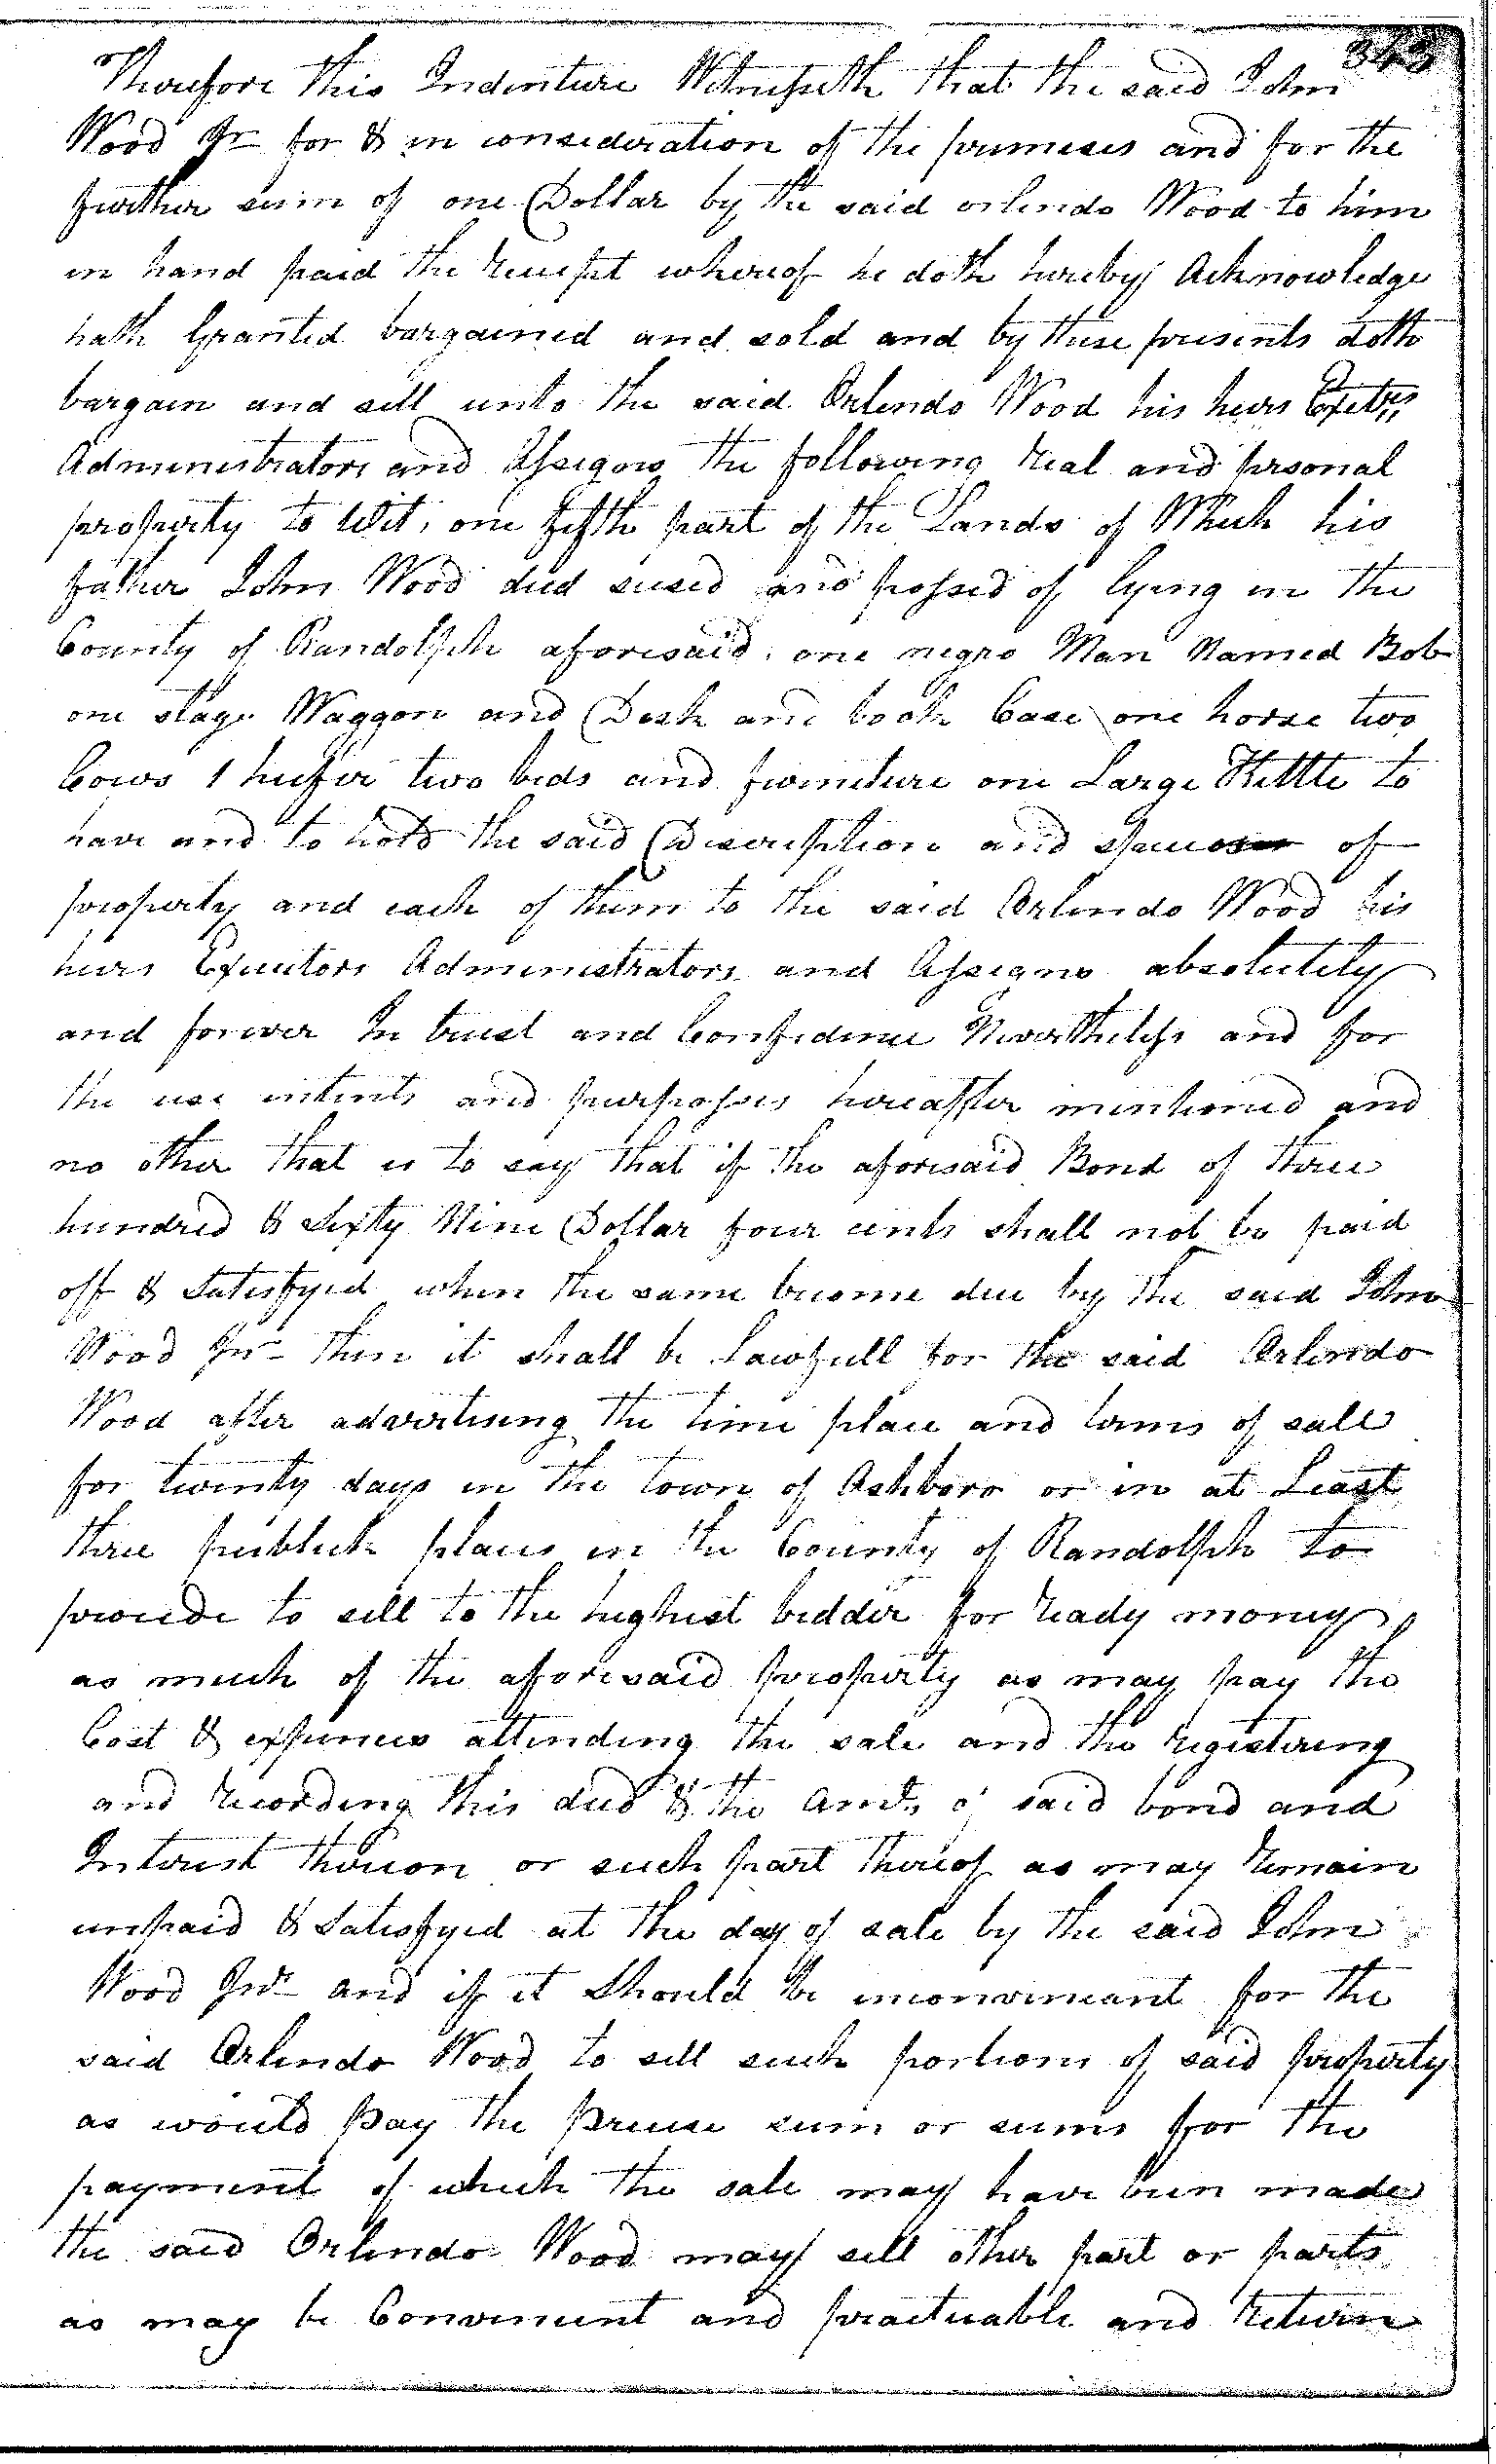 343
Therefore this Indenture Witnesseth that the said John
Wood Jr for & in consideration of the premeses and for the
further sum of one Dollar by the said orlendo Wood to him
in hand paid the receipt whereof he doth hereby Acknowledge
hath Granted bargained and sold and by these presents doth
bargain and sell unto the said Orlendo Wood his heirs Exetrs
Administrators and Assigns the following real and prsonal
property to Wit, one fifth part of the Lands of Which his
father John Wood died seised and possed of lying in the
County of Randolph aforesaid, one negro Man Named Bob
one stage Waggon and Desk and book Case one horse two
Cows 1 heifer two beds and furneture one Large Kettle to
have and to hold the said Discription and of
property and each of them to the said Orlendo Wood his
heirs Executors Administrators and Assigns absolutely
and forever In trust and Confidence Nevertheless and for
the use intents and purposses hereafter mentioned and
no other that is to say that if the aforesaid Bond of three
hundred & Sixty Nine Dollar four cents shall not be paid
off & Satisfyed when the same become due by the said John
Wood Jnr then it shall be Lawfull for the said Orlendo
Wood after advertising the time place and terms of sale
for twenty days in the town of Ashboro or in at Least
three publick places in the County of Randolph to
procede to sell to the highest bidder for ready money
as much of the aforesaid property as may pay the
Cost & expences attending the sale and the registering
and recording this deed & the Amt, of said bond and
Interest thereon or such part thereof as may remain
unpaid & Satisfyed at the day of sale by the said John
Wood Jnr and if it Should be inconveneant for the
said Orlendo Wood to sell such portions of said property
as would pay the precise sum or sums for the
payment of which the sale may have been made
the said Orlendo Wood may sell other part or parts
as may be Convenient and practicable and return